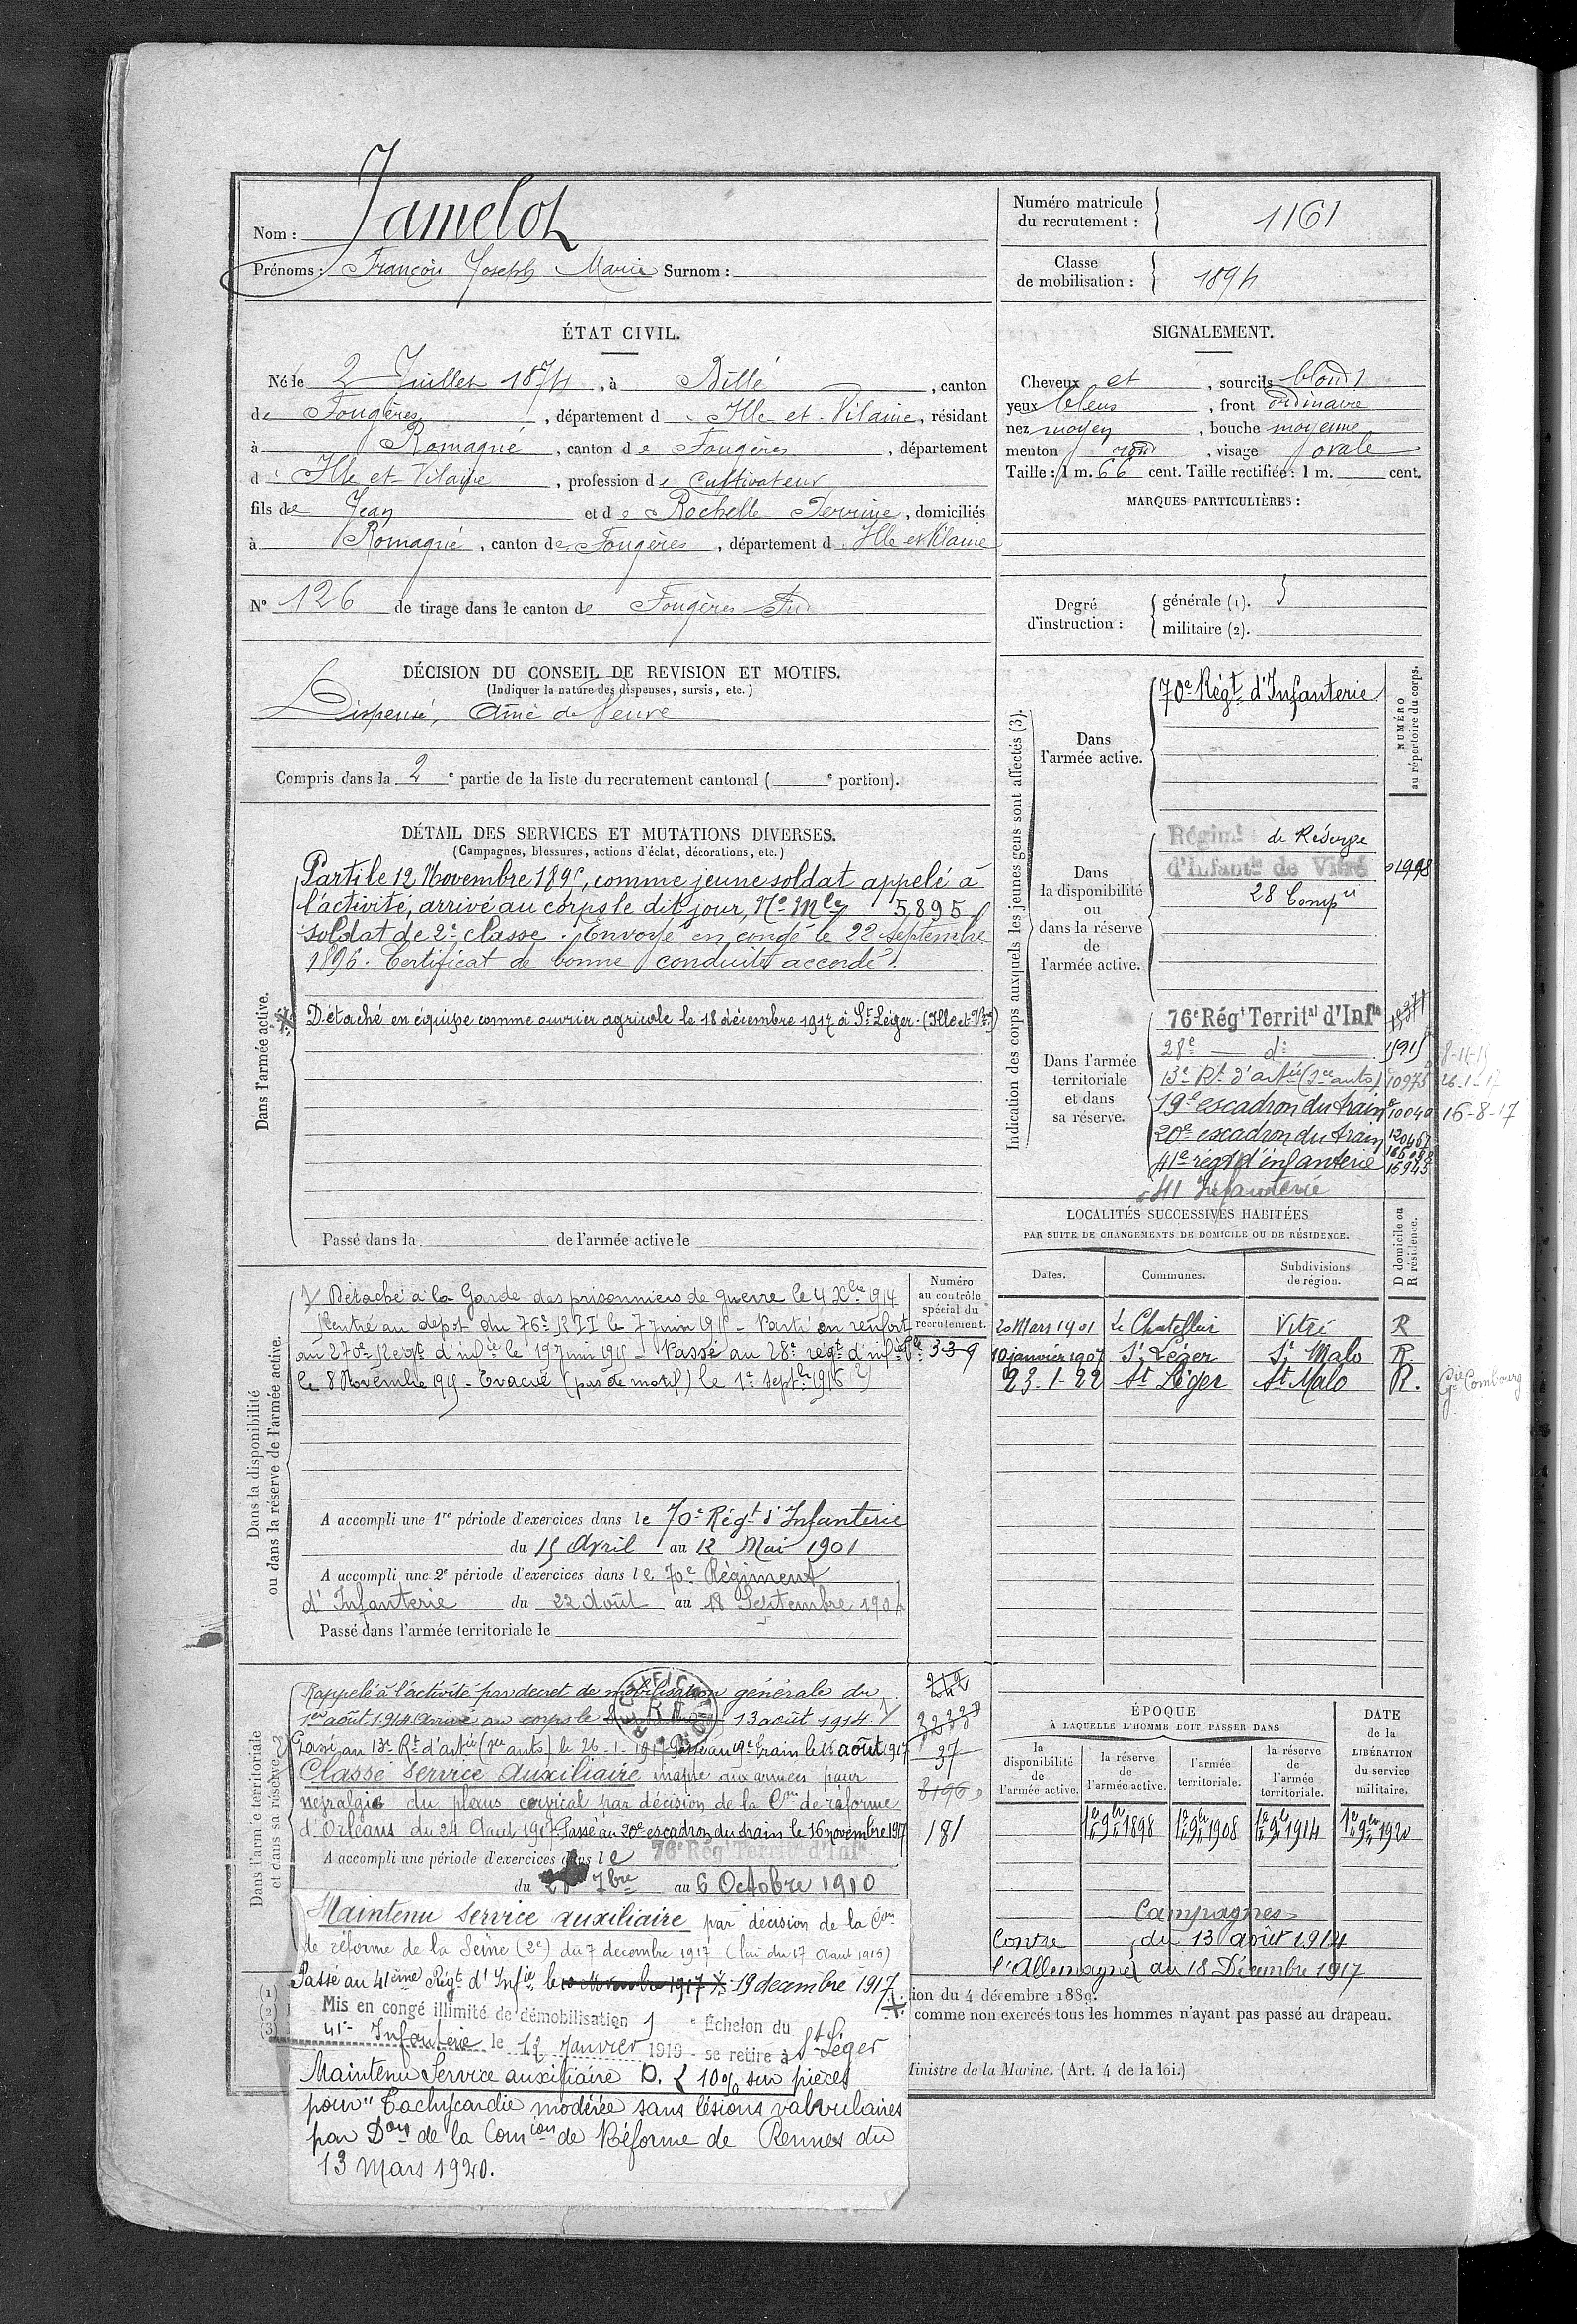 Nom : Jamelot
Prénoms : François Joseph Marie Surnom :
Numéro matricule
du recrutement : 1161
Classe
de mobilisation : 1894
ÉTAT CIVIL.
Né le 2 Juillet 1874, à Billé, canton
de Fougères, département d Ille-et-Vilaine, résidant
à Romagné, canton de Fougères, département
d Ille-et-Vilaine, profession de Cultivateur
fils de Jean et de Rochelle Perrine, domiciliés
à Romagné, canton de Fougères, département d Ille et Vilaine
N° 126 de tirage dans le canton de Fougères Sud
SIGNALEMENT.
Cheveux et, sourcils blonds
yeux bleus, front ordinaire
nez moyen, bouche moyenne
menton rond, visage ovale
Taille : 1 m. 66 cent. Taille rectifiée : 1 m. cent.
MARQUES PARTICULIÈRES :
Degré
d'instruction :
générale (1). 3
militaire (2).
DÉCISION DU CONSEIL DE REVISION ET MOTIFS.
(Indiquer la nature des dispenses, sursis, etc.)
Dispensé, Aîné de Veuve
Compris dans la 2e partie de la liste du recrutement cantonal ( e portion).
DÉTAIL DES SERVICES ET MUTATIONS DIVERSES.
(Campagnes, blessures, actions d'éclat, décorations, etc.)
Dans l'armée active.
Parti le 12 Novembre 1895, comme jeune soldat appelé à
l'activité, arrivé au corps le dit jour, No Mle 5895
soldat de 2e classe. Envoyé en congé le 22 septembre
1896. Certificat de bonne conduite accordé.
Détaché en équipe comme ouvrier agricole le 18 décembre 1917 à St Léger. (Ille et Vne)
Passé dans la de l'armée active le
Indication des corps auxquels les jeunes gens sont affectés (3).
NUMÉRO
au répertoire du corps.
Dans
l'armée active.
70e Régt d'Infanterie
Dans
la disponibilité
ou
dans la réserve
de
l'armée active.
Régimt de Réserve
d'Infantie de Vitré 1998
28 Compie
Dans l'armée
territoriale
et dans
sa réserve.
76e Régt Territal d'Infie
28e — d° — 1915 8-11-15
13e Rt d'artie (1re auto) 10975 26-1-17
19e escadron du train 10040 16-8-17
20e escadron du train
41e régt d'infanterie 16945
41 Infanterie
LOCALITÉS SUCCESSIVES HABITÉES
PAR SUITE DE CHANGEMENTS DE DOMICILE OU DE RÉSIDENCE.
Dates. Communes. Subdivisions de région. D domicile ou R résidence.
20 Mars 1901 Le Chatellier Vitré R
10 janvier 1907 St Léger St Malo R
23-1-22 St Léger St Malo R. Gie Combourg
Dans la disponibilité
ou dans la réserve de l'armée active.
Numéro
au contrôle
spécial du
recrutement.
Détaché à la Garde des prisonniers de guerre le 4 Xbre 1914
Rentré au dépot du 76e RIT le 7 juin 1915 - Parti en renfort
au 270e Régt d'infie le 19 juin 1915 - Passé au 28e régt d'infie Tle 339
le 8 Novembre 1915 - Evacué (pas de motif) le 1er Septbre 1916
A accompli une 1re période d'exercices dans le 70e Régt d'Infanterie
du 15 Avril au 12 Mai 1901
A accompli une 2e période d'exercices dans le 70e Régiment
d'Infanterie du 22 Août au 18 Septembre 1904
Passé dans l'armée territoriale le
Dans l'armée territoriale
et dans sa réserve.
Rappelé à l'activité par décret de mobilisation générale du
1er août 1914 Arrivé au corps le 13 août 1914.
Passé au 13e Rt d'artie (1re auto) le 26-1-1917 Passé au 19e train le 16 août 1917 37
Classé Service Auxiliaire inapte aux armées pour
névralgie du plexus cervical par décision de la Con de réforme
d'Orléans du 24 Aout 1917. Passé au 20e escadron du train le 16 novembre 1917 181
A accompli une période d'exercices dans le 76e Régt Territal d'Infie
du 7bre au 6 Octobre 1910
Maintenu Service auxiliaire par décision de la Con
de réforme de la Seine (2e) du 7 decembre 1917 (loi du 17 Aout 1915)
Passé au 41ème Régt d'Infie le 19 decembre 1917.
Mis en congé illimité de démobilisation 1 e Échelon du
41e Infanterie le 12 Janvier 1919 - se retire à St Léger
Maintenu Service auxiliaire D. < 10% sur pièces
pour "Tachycardie modérée sans lésions valvulaires
par Don de la Comion de Réforme de Rennes du
13 Mars 1920.
ÉPOQUE
À LAQUELLE L'HOMME DOIT PASSER DANS
la disponibilité de l'armée active.
la réserve de l'armée active.
l'armée territoriale.
la réserve de l'armée territoriale.
DATE de la LIBÉRATION du service militaire.
1er 9bre 1898 1er 9bre 1908 1er 9bre 1914 1er 9bre 1920
Campagnes
Contre du 13 août 1914
l'Allemagne au 18 Décembre 1917
ion du 4 décembre 1889.
comme non exercés tous les hommes n'ayant pas passé au drapeau.
Ministre de la Marine. (Art. 4 de la loi.)